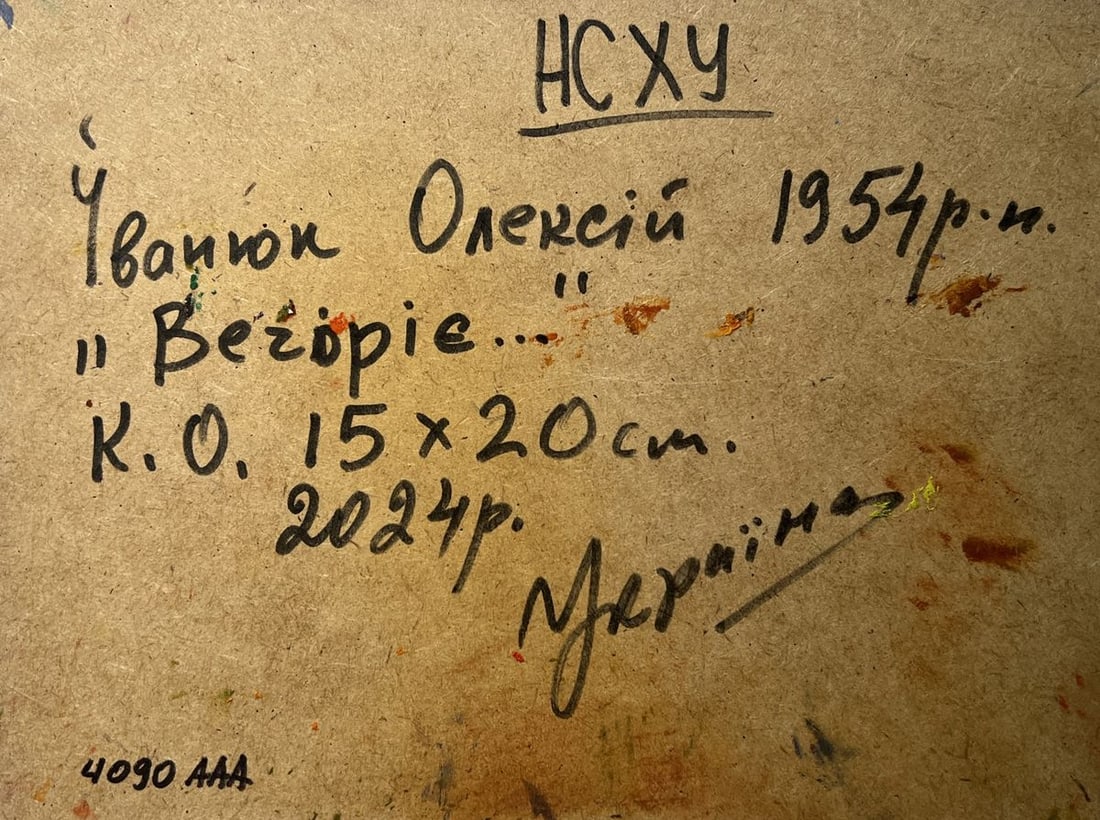 НСХУ
Іванюк Олексій 1954р.н.
"Вечоріє..."
К.О. 15х20см.
2024р.
Україна
4090 ААА